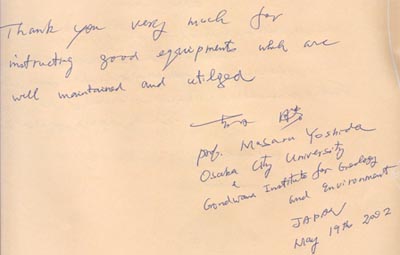 Thank you very much for
instructing good equipments which are
well maintained and utilged
Prof. Masaru Yoshida
Osaka City University
& Gondwana Institute for Geology
and Environment
JAPAN
May 19th 2002